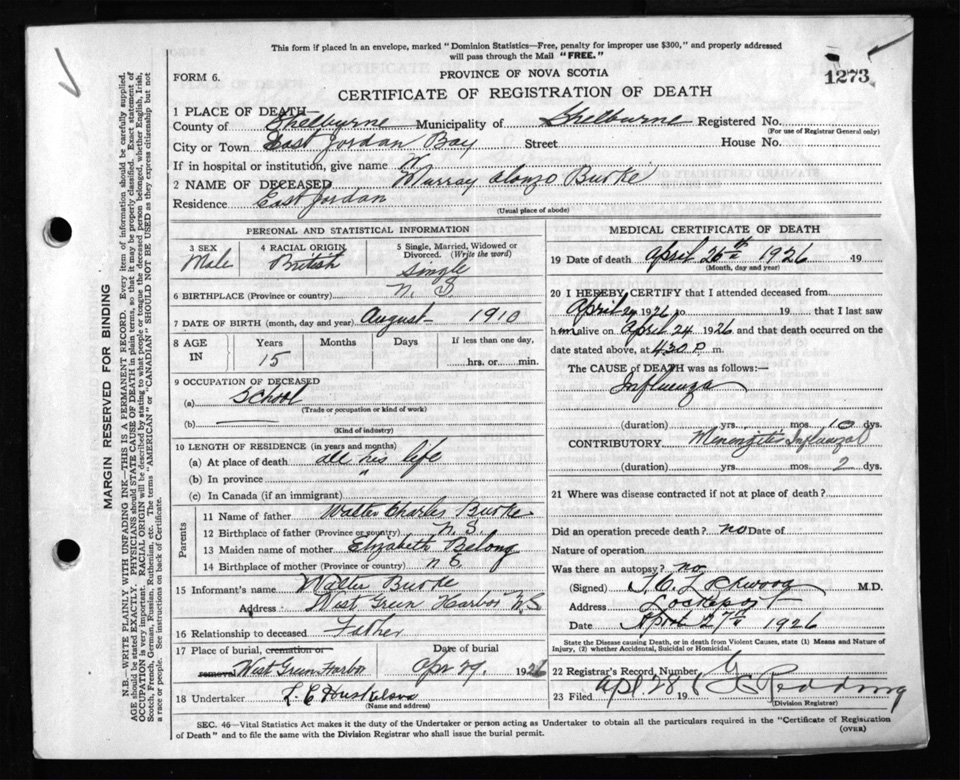 This form if placed in an envelope, marked "Dominion Statistics—Free, penalty for improper use $300," and properly addressed
will pass through the Mail "FREE."
1273
FORM 6.
PROVINCE OF NOVA SCOTIA
CERTIFICATE OF REGISTRATION OF DEATH
1 PLACE OF DEATH
County of Shelburne Municipality of Shelburne Registered No.
(For use of Registrar General only)
City or Town East Jordan Bay Street House No.
If in hospital or institution, give name
2 NAME OF DECEASED Murray Alonzo Burke
Residence East Jordan
(Usual place of abode)
PERSONAL AND STATISTICAL INFORMATION
3 SEX Male
4 RACIAL ORIGIN British
5 Single, Married, Widowed or
Divorced. (Write the word)
Single
6 BIRTHPLACE (Province or country) N. S.
7 DATE OF BIRTH (month, day and year) August 1910
8 AGE IN Years Months Days If less than one day,
15 hrs. or min.
9 OCCUPATION OF DECEASED
(a) School
(Trade or occupation or kind of work)
(b)
(Kind of industry)
10 LENGTH OF RESIDENCE (in years and months)
(a) At place of death all his life
(b) In province "
(c) In Canada (if an immigrant)
Parents
11 Name of father Walter Charles Burke
12 Birthplace of father (Province or country) N. S.
13 Maiden name of mother Elizabeth
14 Birthplace of mother (Province or country) N S.
15 Informant's name Walter Burke
Address West Green Harbor N.S
16 Relationship to deceased Father
17 Place of burial, cremation or Date of burial
removal West Green Harbor Apr 29. 1926
18 Undertaker
(Name and address)
MEDICAL CERTIFICATE OF DEATH
19 Date of death April 26th 1926 19
(Month, day and year)
20 I HEREBY CERTIFY that I attended deceased from
April 1926 to 19 that I last saw
him alive on April 24 1926 and that death occurred on the
date stated above, at 4.30 P. m.
The CAUSE of DEATH was as follows:—
Influenza
(duration) yrs. mos. 10 dys.
CONTRIBUTORY Meningitis Influenzal
(duration) yrs. mos. 2 dys.
21 Where was disease contracted if not at place of death?
Did an operation precede death? no Date of
Nature of operation
Was there an autopsy? no
(Signed) M.D.
Address Lockeport
Date April 27th 1926
State the Disease causing Death, or in death from Violent Causes, state (1) Means and Nature of
Injury, (2) whether Accidental, Suicidal or Homicidal.
22 Registrar's Record, Number
23 Filed Apl 28 19 Redding
(Division Registrar)
SEC. 46—Vital Statistics Act makes it the duty of the Undertaker or person acting as Undertaker to obtain all the particulars required in the "Certificate of Registration
of Death" and to file the same with the Division Registrar who shall issue the burial permit.
(OVER)
MARGIN RESERVED FOR BINDING
N.B.—WRITE PLAINLY WITH UNFADING INK—THIS IS A PERMANENT RECORD. Every item of information should be carefully supplied.
AGE should be stated EXACTLY. PHYSICIANS should STATE CAUSE OF DEATH in plain terms, so that it may be properly classified. Exact statement of
OCCUPATION is very important. RACIAL ORIGIN will be described by stating to what people or tongue the deceased person belonged, whether English, Irish,
Scotch, French, German, Russian, Ruthenian, etc. The terms "AMERICAN" or "CANADIAN" SHOULD NOT BE USED as they express citizenship but not
a race or people. See instructions on back of Certificate.